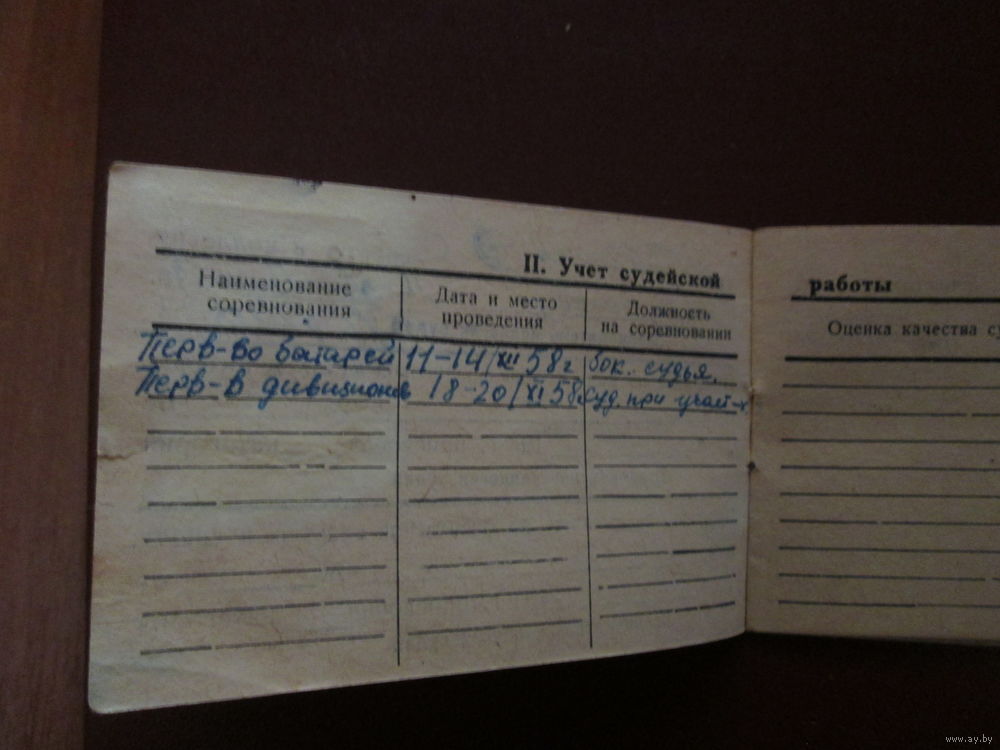 II. Учет судейской работы
Наименование соревнования
Дата и место проведения
Должность на соревновании
Оценка качества с
Перв-во батарей 11-14/XII 58г бок. судья.
Перв-в дивизионов 18-20/XI 58г суд. при участ-х
www.ay.by